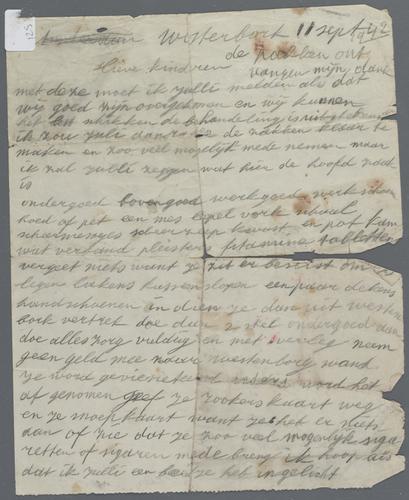 125
Amsterdam Westerbork 11 sept 1942
de pakken ont
Lieve kinderen vangen mijn dank
met deze moet ik jullie melden als dat
wij goed zijn overgekomen en wij kunnen
het schikken de behandeling is
ik zou jullie de pakken klaar te
maken en zoo veel mogelijk mede nemen maar
ik zal jullie zeggen wat hier de hoofd zaak
is
ondergoed bovengoed werkgoed werkschoen
hoed of pet een mes lepel vork
scheermesjes scheerzeep kwast, en pot kam
wat verband pleisters fitamine tabletten
vergeet niets want je zit er om
legen lakens kussenslopen een paar dekens
handschoenen in dien ze dan uit westen
bork vertrek doe dan 2 stel ondergoed aan
doe alles zorgvuldig en met overleg neem
geen geld mee naar westenborg want
je word gevisiteerd word het
af genomen geef je rookers kaart weg
en je snoepkaart want je het er niets
dan of zie dat je zoo veel mogenlijk siga
retten of sigaren mede breng ik hoop als
dat ik jullie een beetje heb ingelicht